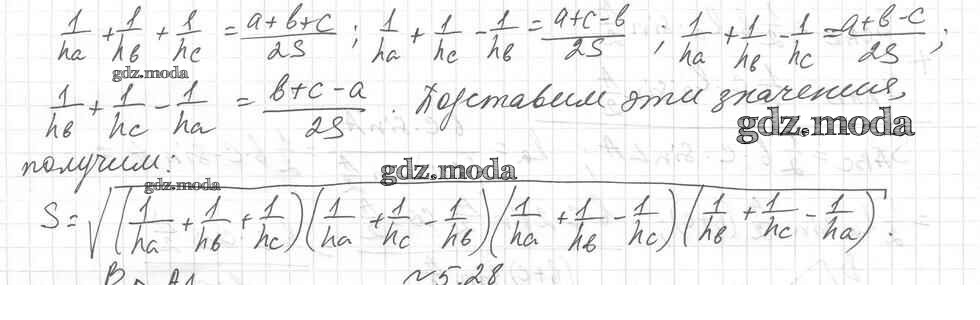 1/ha + 1/hb + 1/hc = a+b+c/2S ; 1/ha + 1/hc - 1/hb = a+c-b/2S ; 1/ha + 1/hb - 1/hc = a+b-c/2S ;
gdz.moda
1/hb + 1/hc - 1/ha = b+c-a/2S . Подставим эти значения,
gdz.moda
получим:
gdz.moda
gdz.moda
S = √(1/ha + 1/hb + 1/hc)(1/ha + 1/hc - 1/hb)(1/ha + 1/hb - 1/hc)(1/hb + 1/hc - 1/ha) .
№5.28